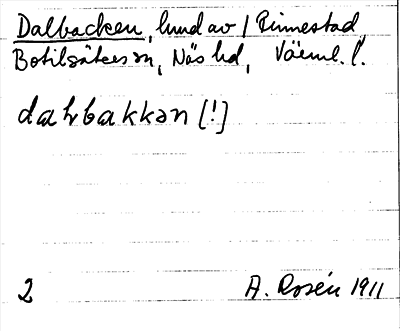 Dalbacken, hund av / Finnestad,
Botilsäters sn, Näs hd, Värml. l.
dahbakkən [!]
2 A. Rosén 1911